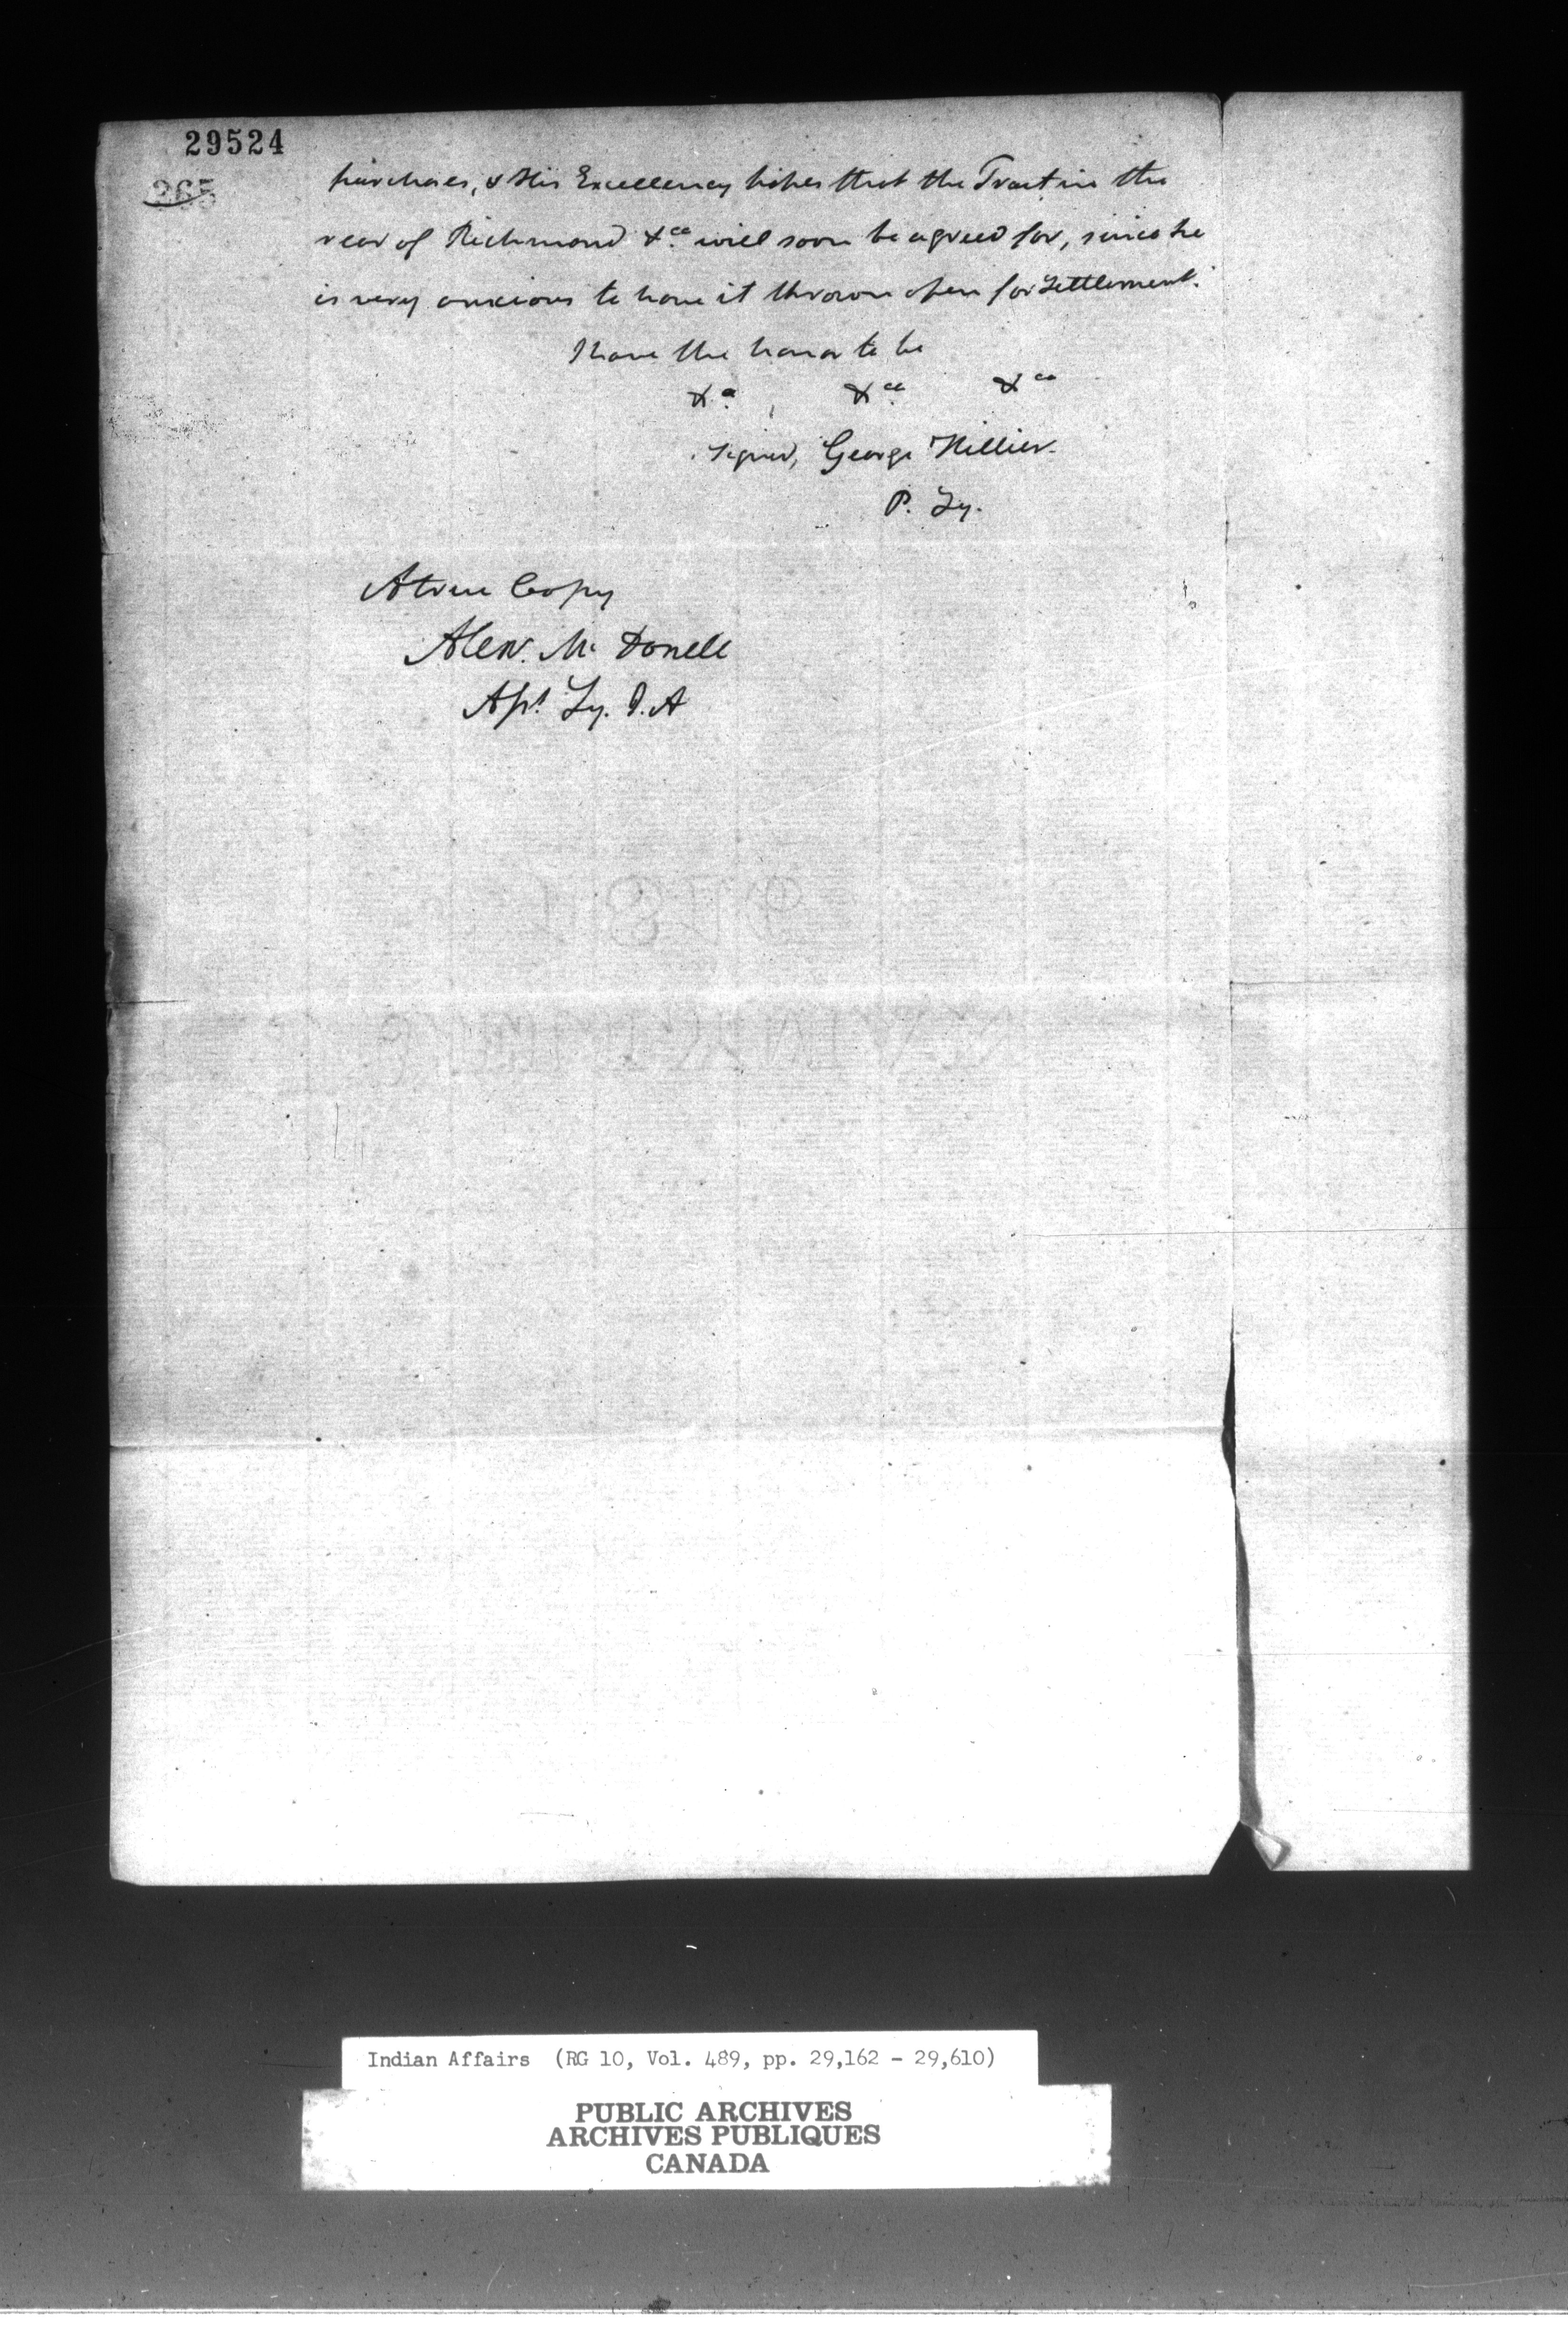 29524
265
purchases, & His Excellency hopes that the Tract in the
rear of Richmond &ca. will soon be agreed for, since he
is very anxious to have it thrown open for Settlement.
I have the honor to be
&ca. &ca. &ca
Signed, George Hillier.
P. Sy.
A true Copy
Alexr. Mc Donell
Asst. Sy. I. A
Indian Affairs (RG 10, Vol. 489, pp. 29,162 - 29,610)
PUBLIC ARCHIVES
ARCHIVES PUBLIQUES
CANADA